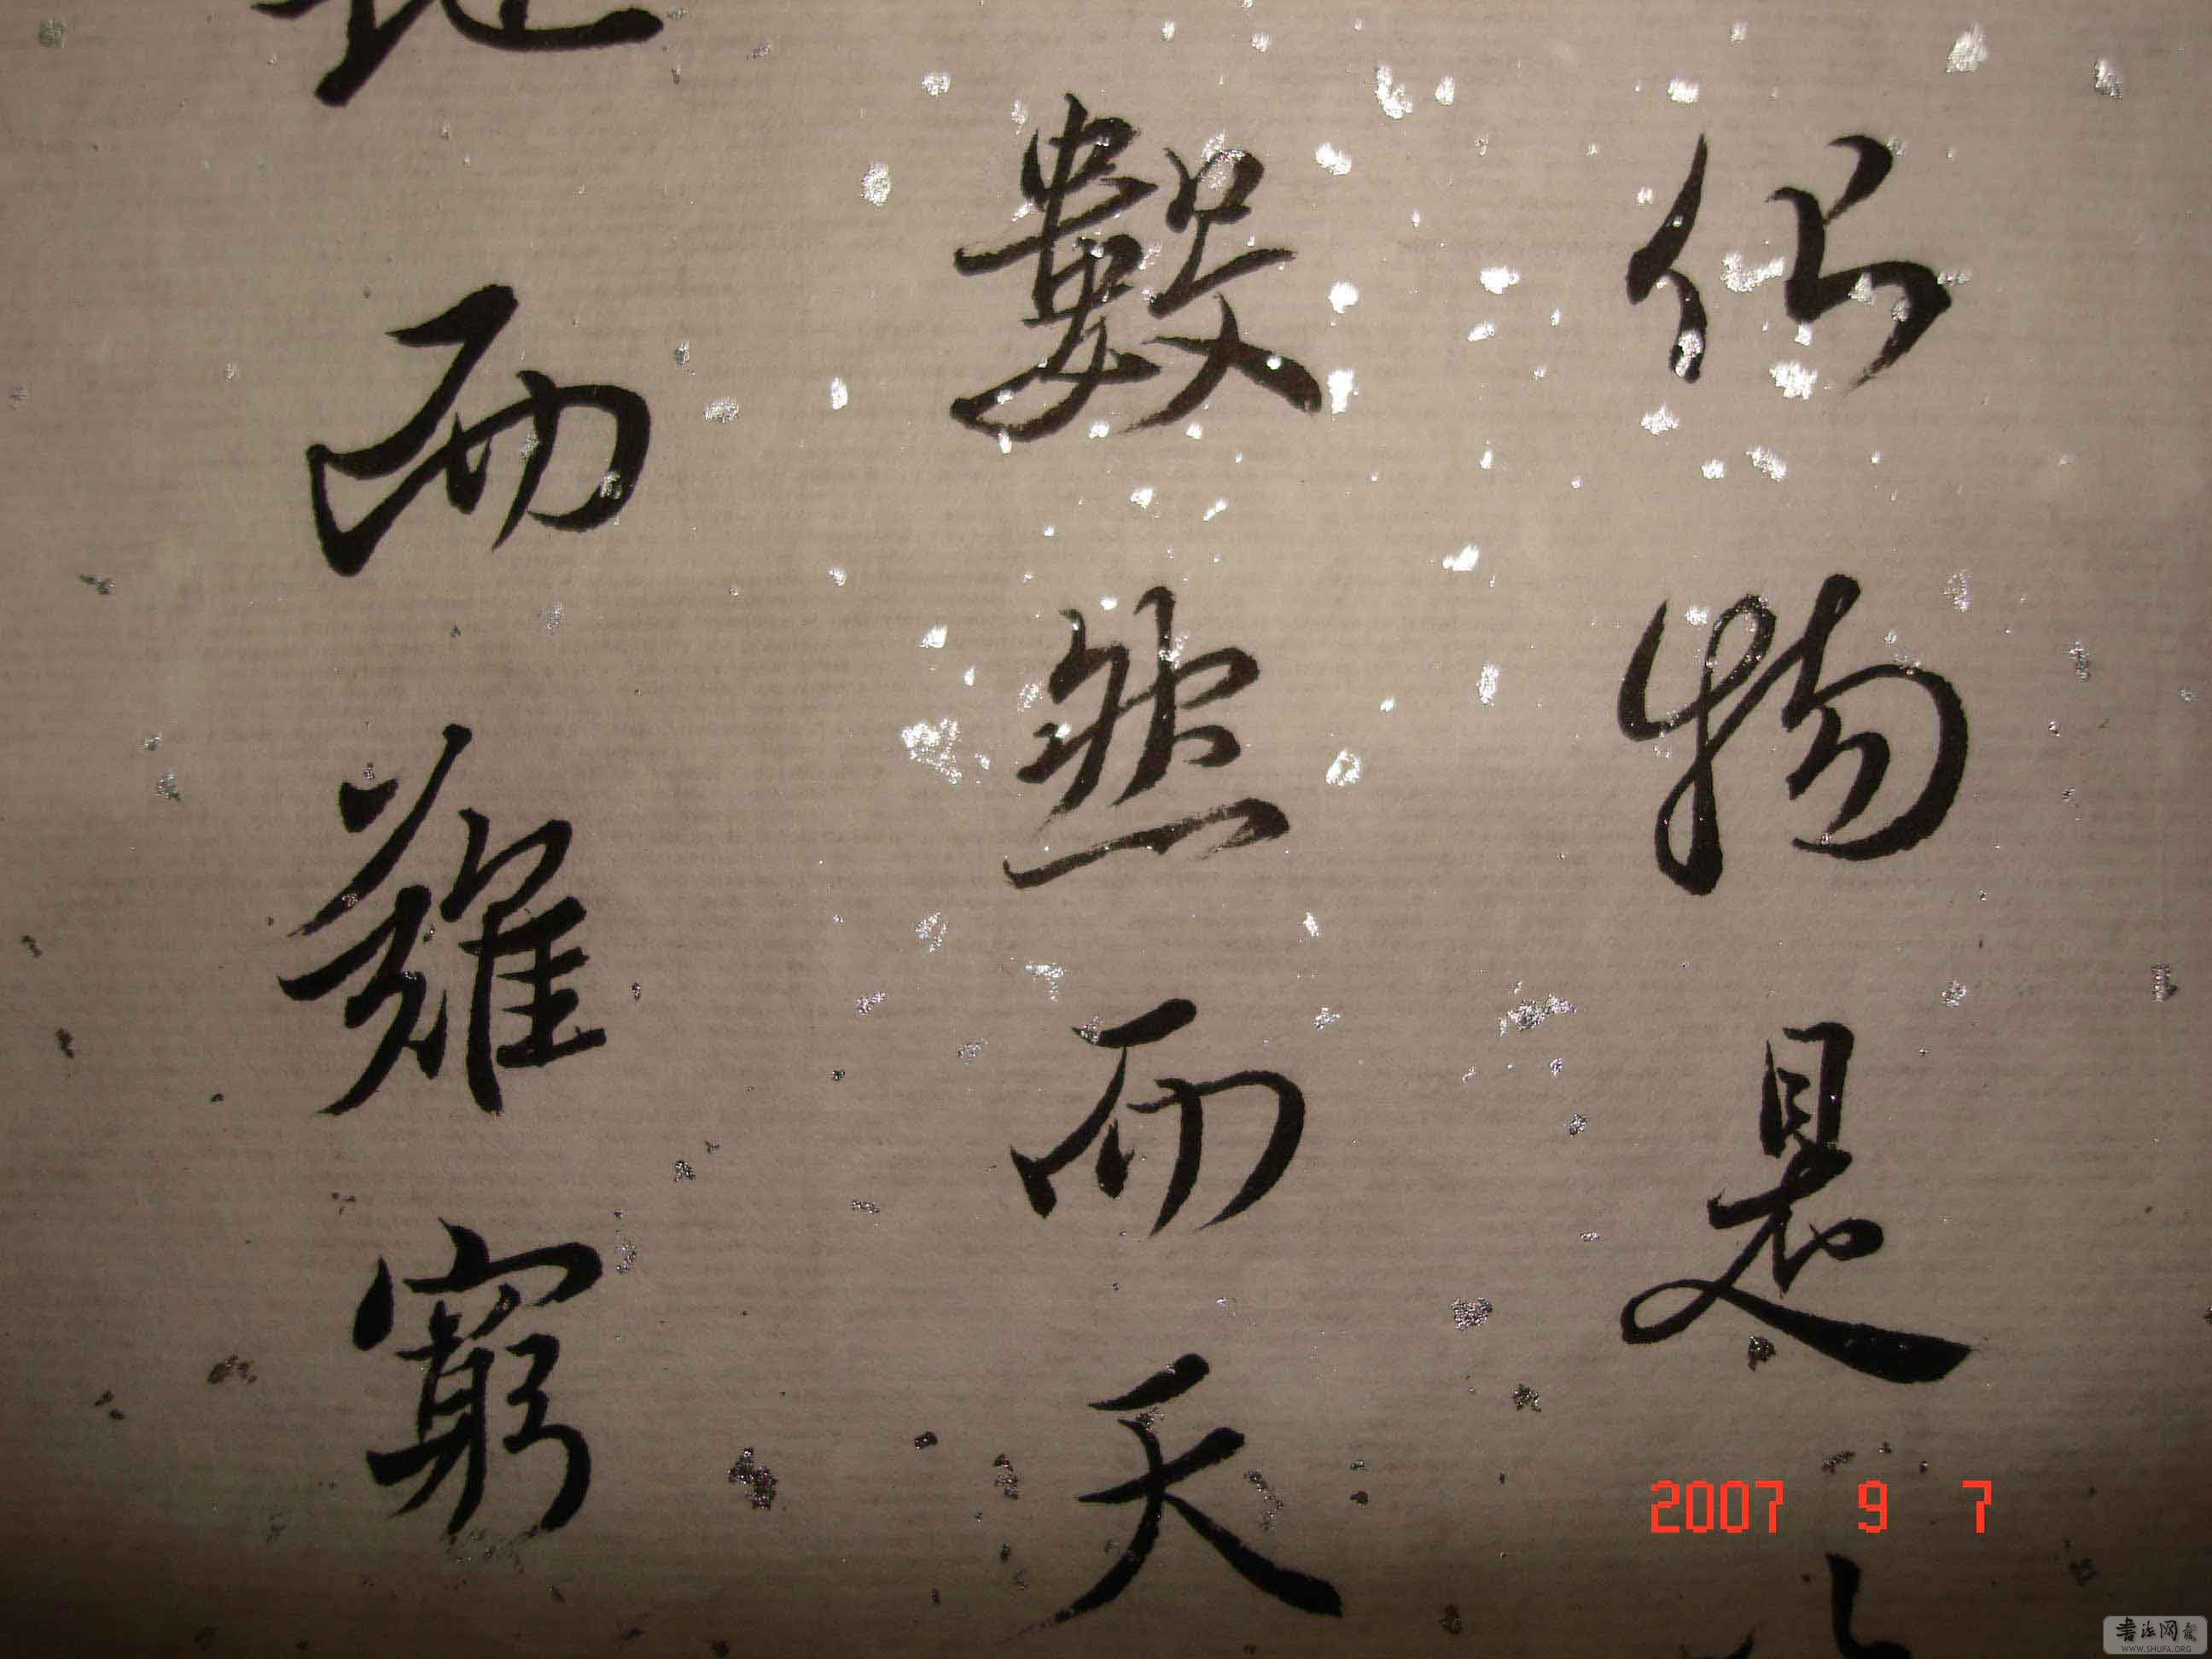 化物是
數然而天
地而難窮
2007 9 7
书法网
WWW.SHUFA.ORG